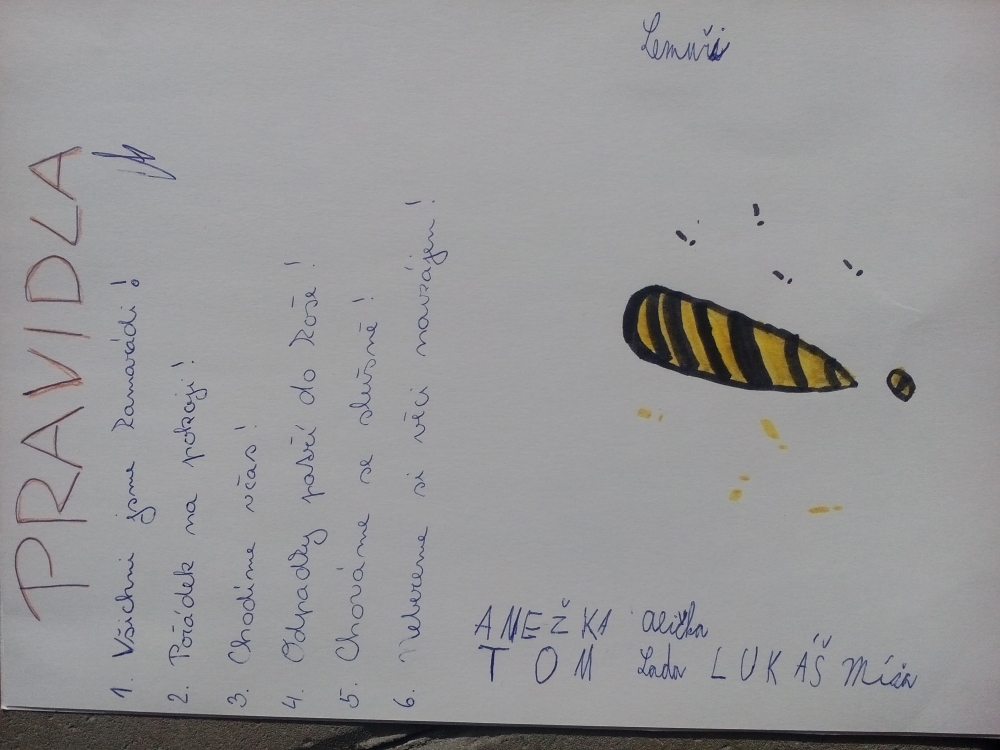 PRAVIDLA
1. Všichni jsme kamarádi!
2. Pořádek na pokoji!
3. Chodíme včas!
4. Odpadky patří do koše!
5. Chováme se slušně!
6. Nebereme si věci navzájem!
Lemuři
ANEŽKA alička
TOM Lada LUKÁŠ Míša